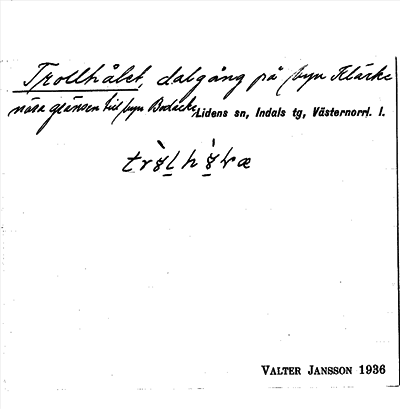 Trollhålet, dalgång på byn Klärke
nära gränsen till byn Bodacke, Lidens sn, Indals tg, Västernorrl. l.
VALTER JANSSON 1936